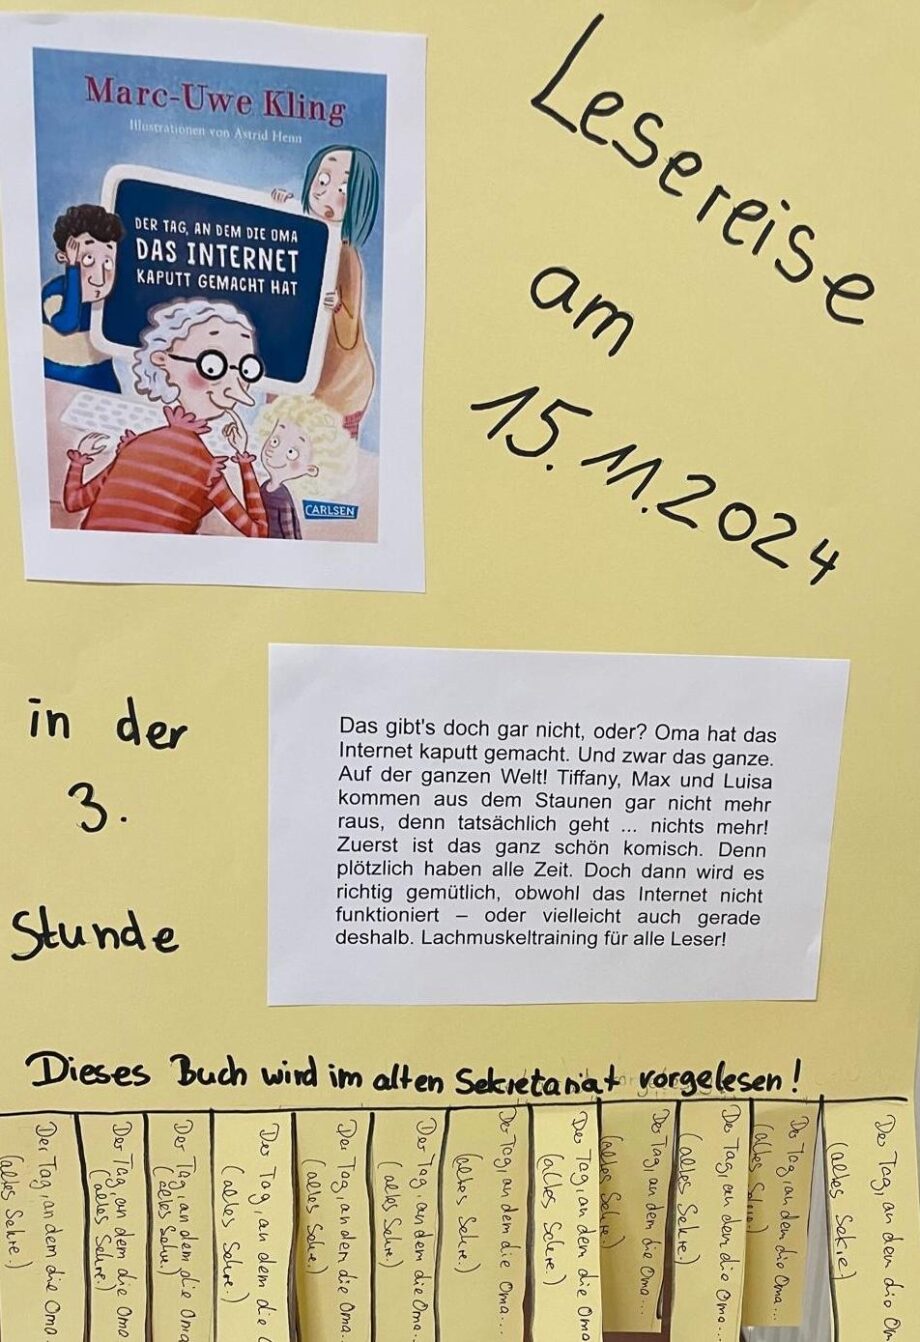 Marc-Uwe Kling
Illustrationen von Astrid Henn
DER TAG, AN DEM DIE OMA
DAS INTERNET
KAPUTT GEMACHT HAT
CARLSEN
Lesereise
am
15.11.2024
in der
3.
Stunde
Das gibt's doch gar nicht, oder? Oma hat das
Internet kaputt gemacht. Und zwar das ganze.
Auf der ganzen Welt! Tiffany, Max und Luisa
kommen aus dem Staunen gar nicht mehr
raus, denn tatsächlich geht ... nichts mehr!
Zuerst ist das ganz schön komisch. Denn
plötzlich haben alle Zeit. Doch dann wird es
richtig gemütlich, obwohl das Internet nicht
funktioniert – oder vielleicht auch gerade
deshalb. Lachmuskeltraining für alle Leser!
Dieses Buch wird im alten Sekretariat vorgelesen!
Der Tag, an dem die Oma
(altes Sekre.)
Der Tag, an dem die Oma
(altes Sekre.)
Der Tag, an dem die Oma
(altes Sekre.)
Der Tag, an dem die
(altes Sekre.)
Der Tag, an dem die Oma...
(altes Sekre.)
Der Tag, an dem die Oma...
(altes Sekre.)
Der Tag, an dem die Oma...
(altes Sekre.)
Der Tag, an dem die Oma
(altes Sekre.)
Der Tag, an dem die Oma...
(altes Sekre.)
Der Tag, an dem die Oma...
(altes Sekre.)
Der Tag, an dem die Oma...
(altes
Der Tag, an dem die
(altes Sekre)